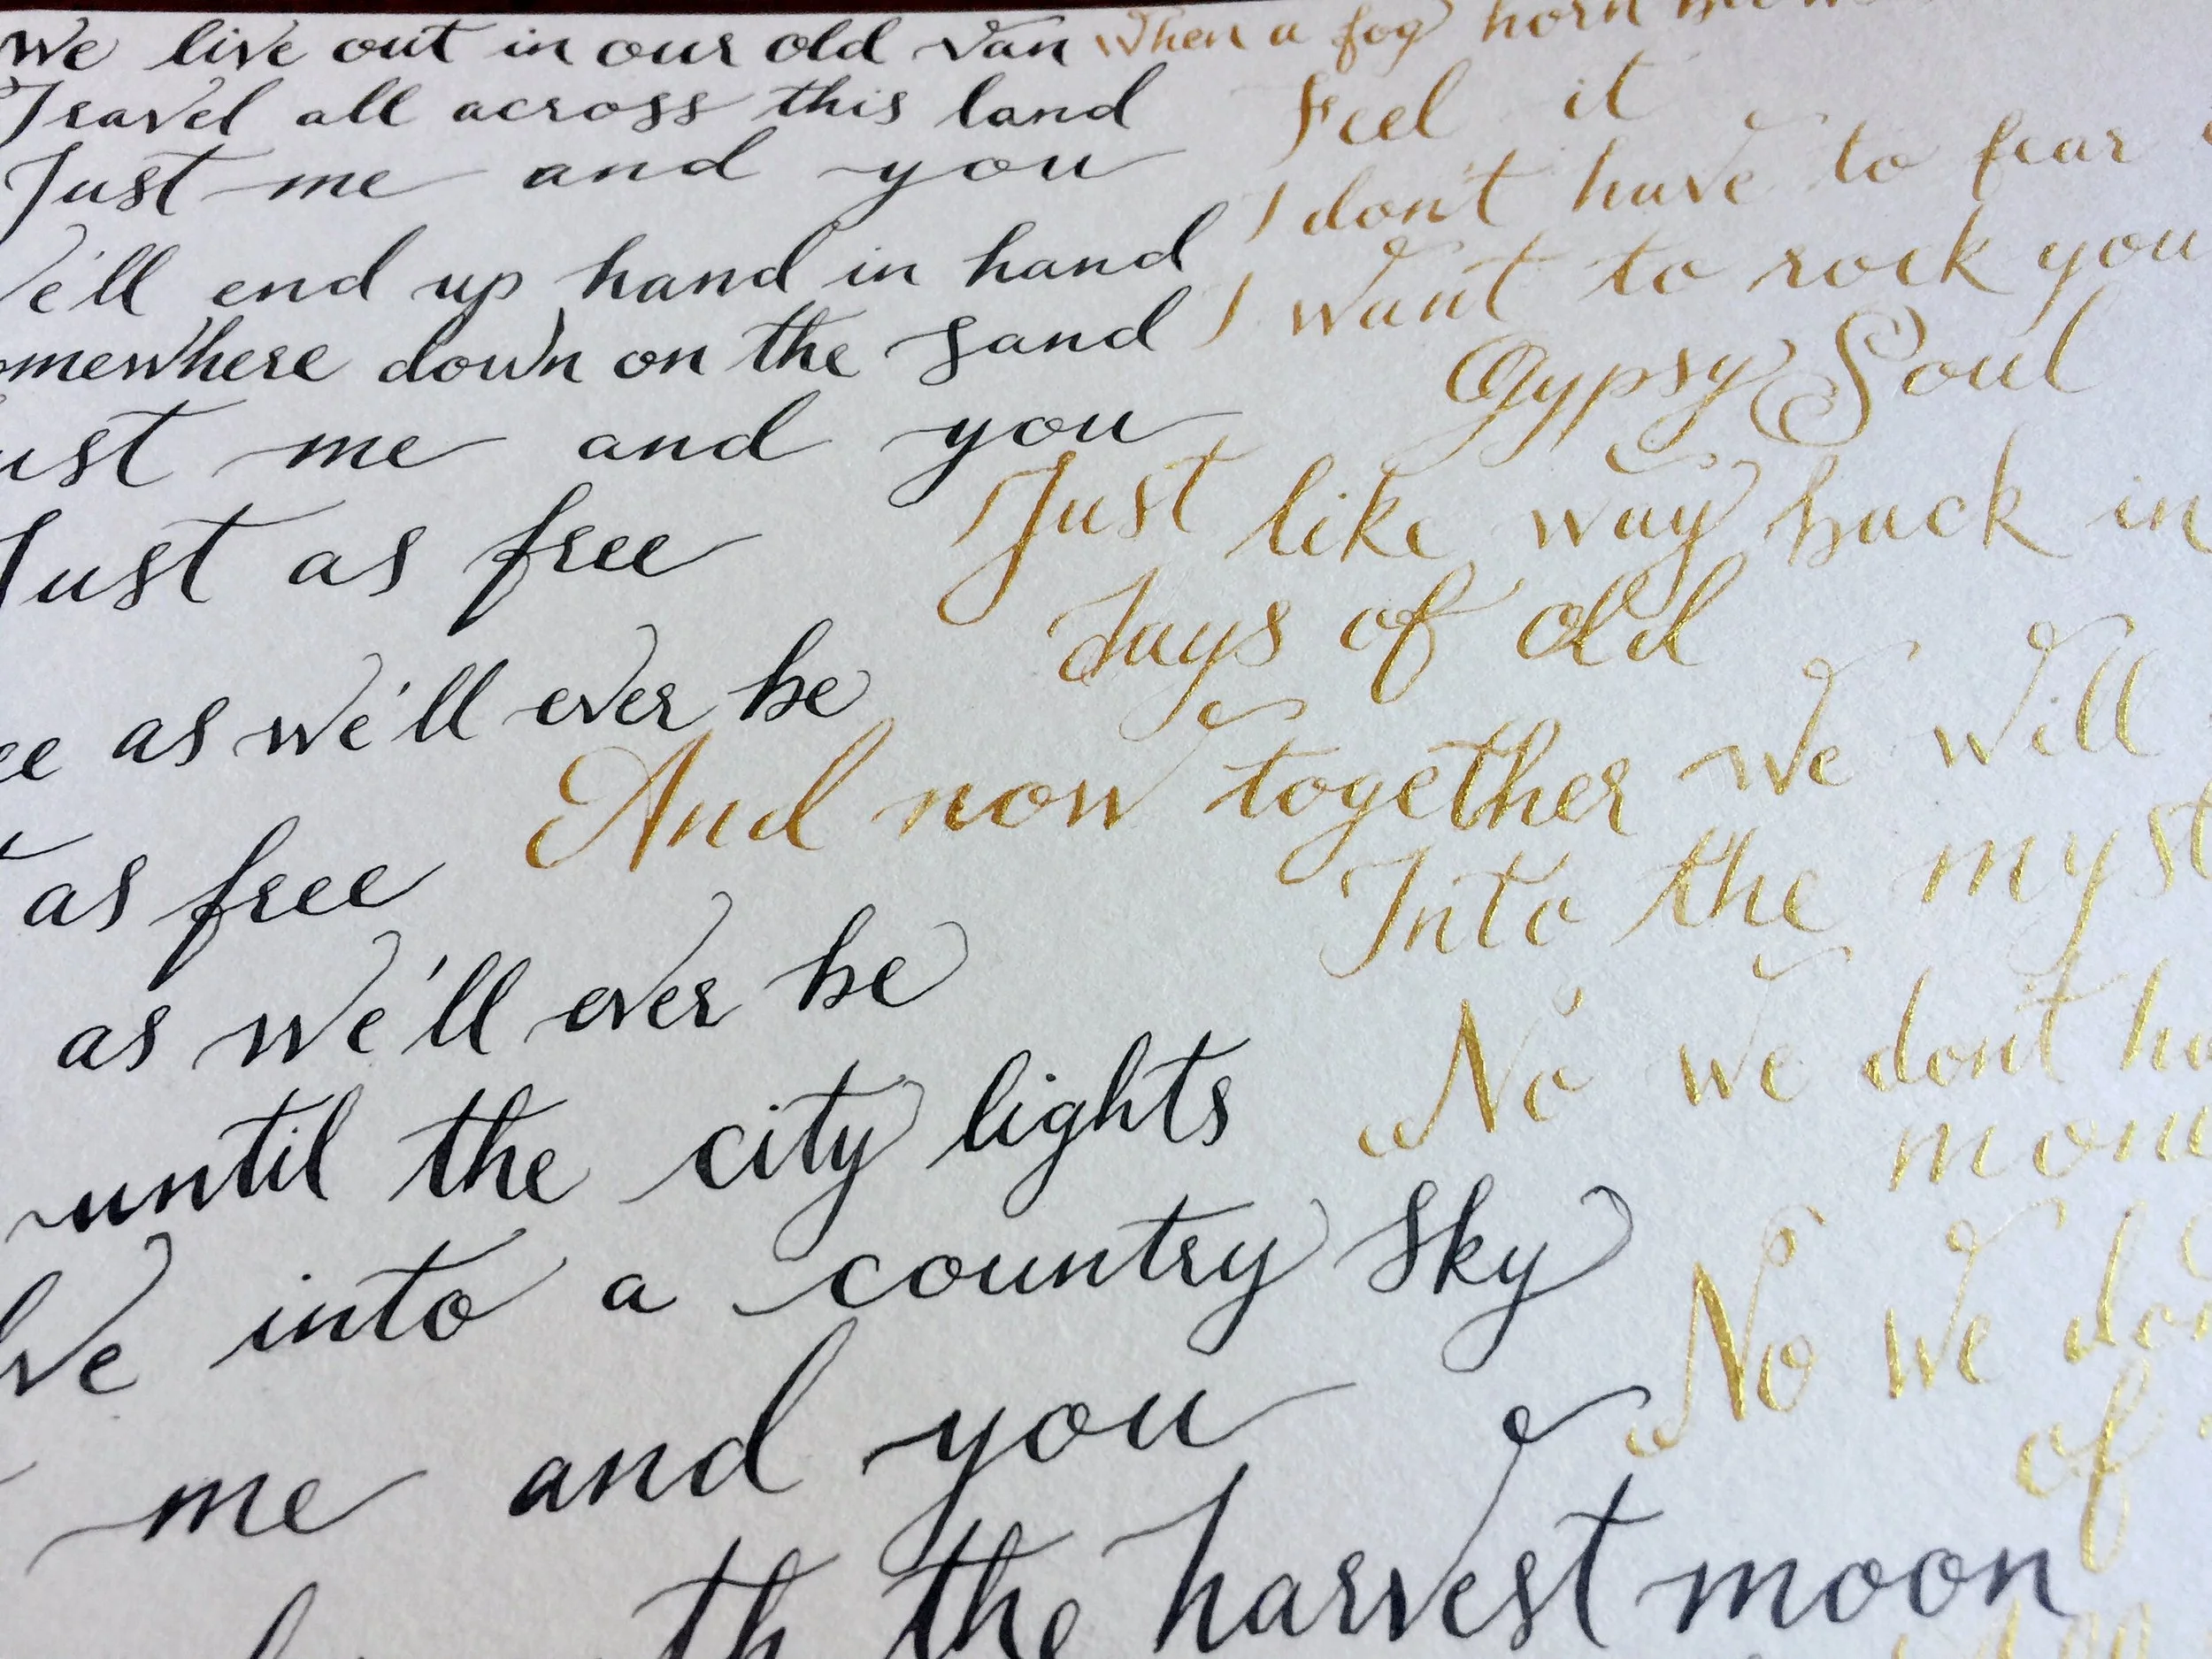 We live out in our old van
Travel all across this land
Just me and you
We'll end up hand in hand
omewhere down on the sand
ust me and you
Just as free
ee as we'll ever be
as free
as we'll ever be
until the city lights
lve into a country sky
me and you
the harvest moon
When a fog horn
Feel it
I don't have to fear
I want to rock you
Gypsy Soul
Just like way back in
days of old
And now together we will
Into the myst
No we don't ha
mone
No we don
of